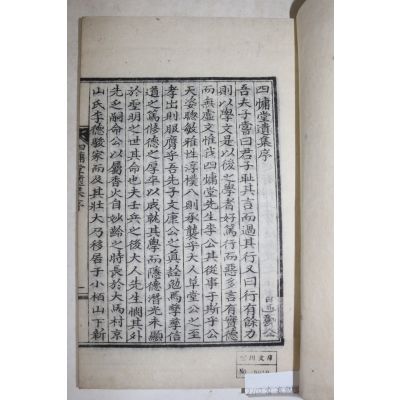 四慵堂遺集序
吾夫子嘗曰君子耻其言而過其行又曰行有餘力
則以學文是以後之學者好篤行而惡多言有實德
而無虛文惟我四慵堂先生李公其從事于斯乎公
天姿聰敏雅性淳樸入則承襲乎大人草堂公之至
孝出則服膺乎吾先子文康公之眞詮勉焉孳孳信
道之篤修德之厚卒以成就其學而隱德潛光未顯
於聖明之世其命也夫壬兵之後大人先生憫其外
先乏嗣命公以屬香火自妙齡之時長於大馬村京
山氏李德駿家而及其壯大乃移居于小栢山下新
四慵堂遺集序
一
川文庫
No.